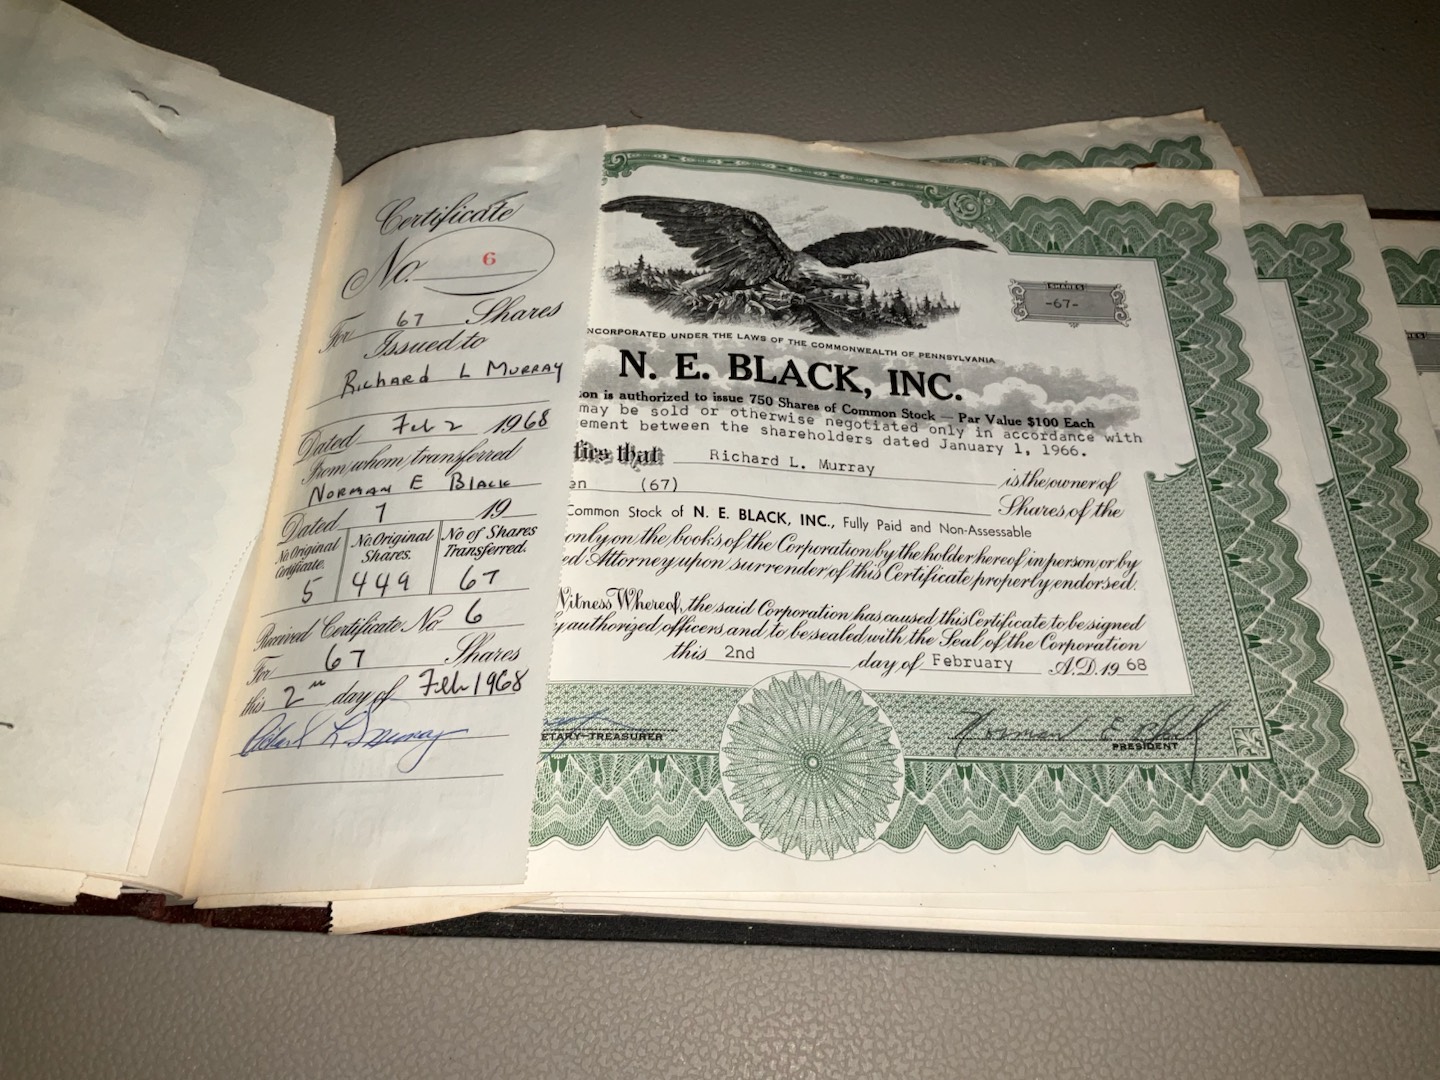 Certificate
No. 6
For 67 Shares
Issued to
Richard L Murray
Dated Feb 2 1968
From whom transferred
Norman E Black
Dated 7 19
No Original Certificate.
No Original Shares.
No of Shares Transferred.
5 449 67
Received Certificate No. 6
For 67 Shares
this 2nd day of Feb 1968
SHARES
-67-
NCORPORATED UNDER THE LAWS OF THE COMMONWEALTH OF PENNSYLVANIA
N. E. BLACK, INC.
ion is authorized to issue 750 Shares of Common Stock — Par Value $100 Each
may be sold or otherwise negotiated only in accordance with
ement between the shareholders dated January 1, 1966.
fies that Richard L. Murray is the owner of
en (67)
Shares of the
Common Stock of N. E. BLACK, INC., Fully Paid and Non-Assessable
only on the books of the Corporation by the holder hereof in person or by
ed Attorney upon surrender of this Certificate properly endorsed.
Witness Whereof, the said Corporation has caused this Certificate to be signed
y authorized officers and to be sealed with the Seal of the Corporation
this 2nd day of February A.D. 19 68
ETARY-TREASURER
Norman E Black
PRESIDENT